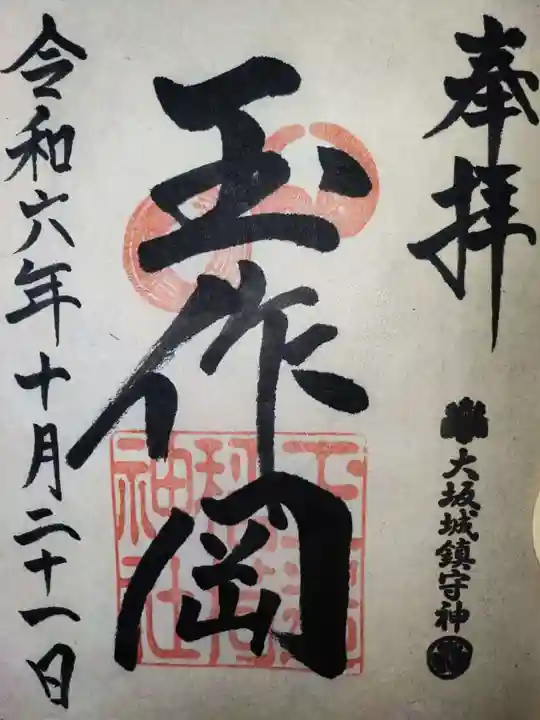 奉拝
大坂城鎮守神
玉作岡
神社
令和六年十月二十一日